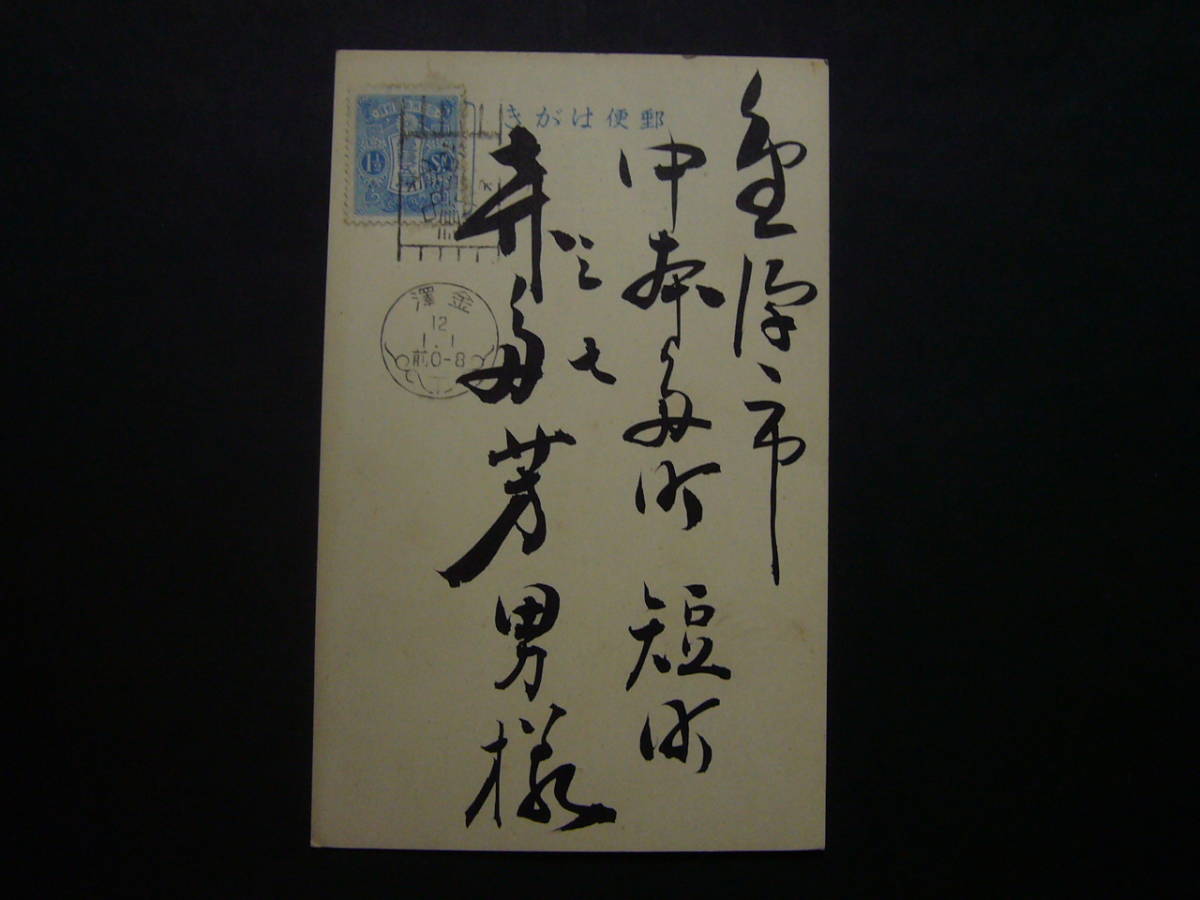 郵便はがき
金澤市
中本多町 短町
本多芳男様
1½
Sn
金澤
12
1.1
前0-8